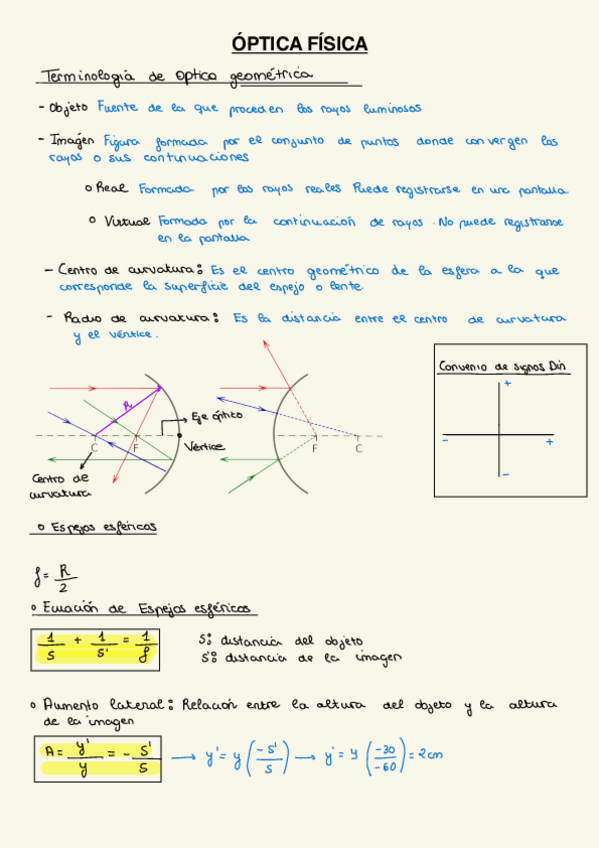 ÓPTICA FÍSICA
Terminología de Optica geométrica
- Objeto Fuente de la que proceden los rayos luminosos
- Imagen Figura formada por el conjunto de puntos donde convergen los
rayos o sus continuaciones
o Real Formada por los rayos reales Puede registrarse en una pantalla
o Virtual Formada por la continuación de rayos. No puede registrarse
en la pantalla
- Centro de curvatura: Es el centro geométrico de la esfera a la que
corresponde la superficie del espejo o lente
- Radio de curvatura: Es la distancia entre el centro de curvatura
y el vértice.
Convenio de signos Din
+
- +
-
R
Eje óptico
C F Vértice
F C
Centro de
curvatura
o Espejos esféricos
f = R/2
o Ecuación de Espejos esféricos
1/s + 1/s' = 1/f
s: distancia del objeto
s': distancia de la imagen
o Aumento lateral: Relación entre la altura del objeto y la altura
de la imagen
A = y'/y = - s'/s → y' = y (-s'/s) → y' = y (-30/-60) = 2cm